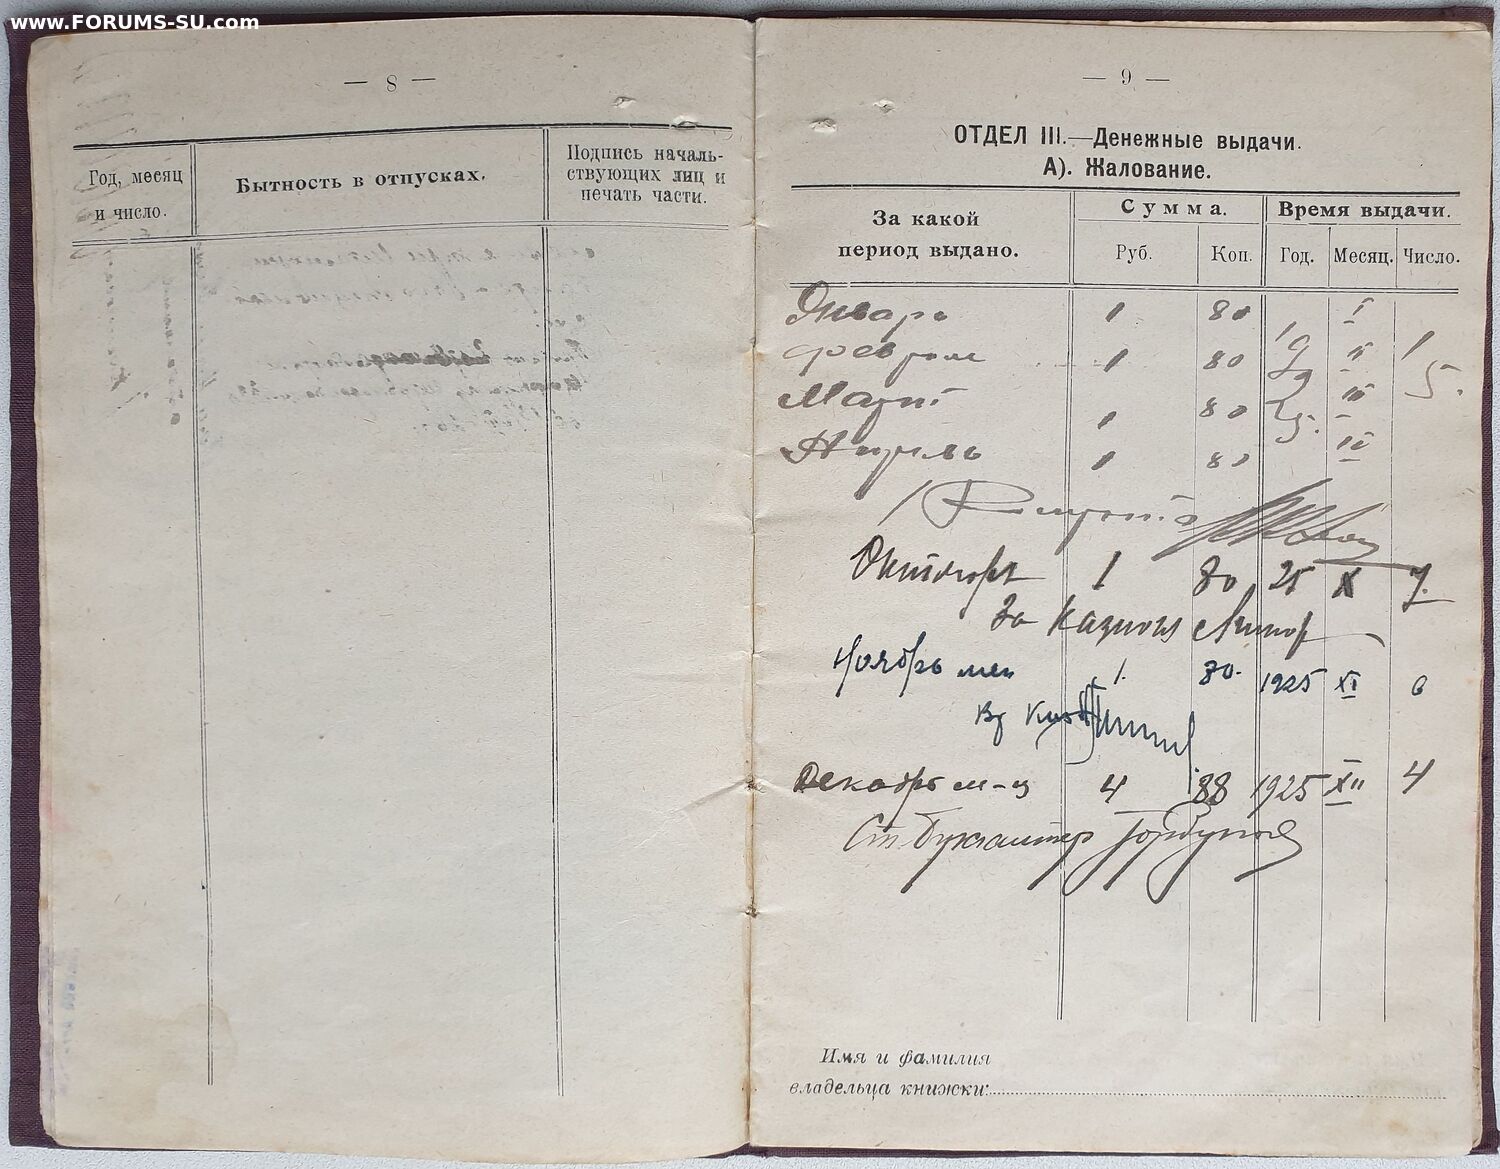 www.FORUMS-SU.com
— 8 —
Год, месяц и число.
Бытность в отпусках.
Подпись началь-
ствующих лиц и
печать части.
— 9 —
ОТДЕЛ III.—Денежные выдачи.
А). Жалование.
За какой
период выдано.
Сумма.
Время выдачи.
Руб.
Коп.
Год.
Месяц.
Число.
Январь 1 80 I
Февраль 1 80 II
Март 1 80 III
Апрель 1 80 IV
1925. 1 5.
Октябрь 1 80 25 X 7.
За Казнач
Ноябрь мец 1. 80. 1925 XI 6
Декабрь м-ц 4 88 1925 XII 4
Ст. Бухгалтер Горбунов
Имя и фамилия
владельца книжки: